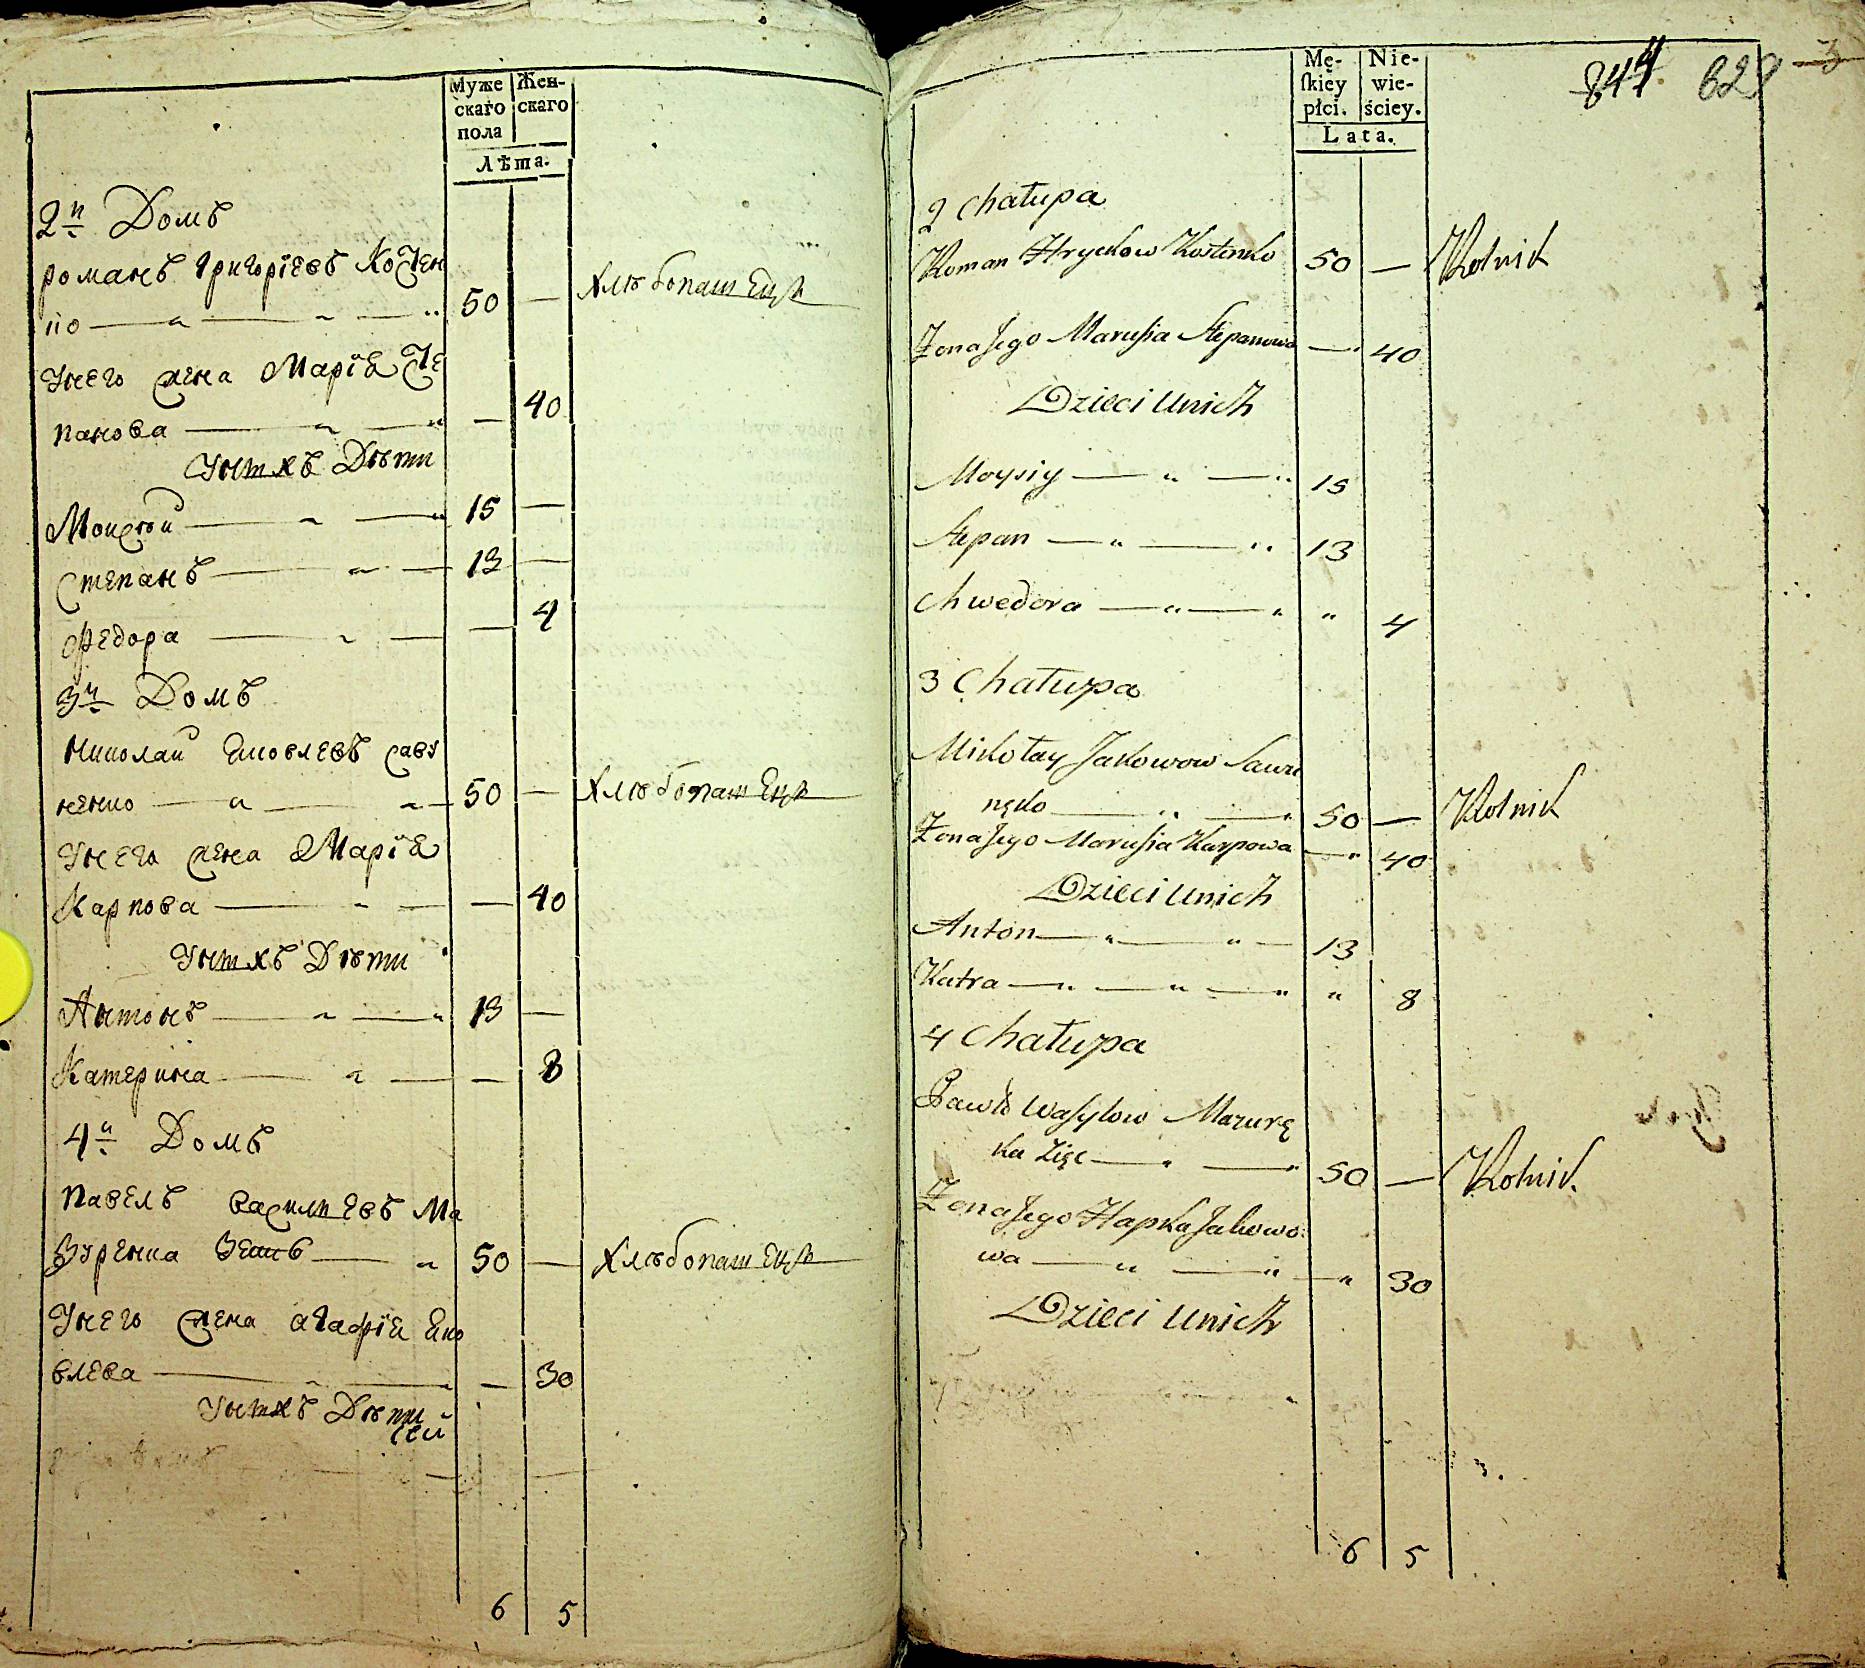 Муже
скаго
пола
Жен-
скаго
Лѣта.
2й Домъ
романъ григорїевъ Костен
ко — " — " — " 50 — хлѣбопашецъ
Унего жена Марїя Сте
панова — " — " — 40
Унихъ Дѣти
Моисѣй — " — " 15 —
Степанъ — " — 13 —
Федора — " — — 4
3й Домъ
николай яковлевъ саву
ненко — " — " — 50 — хлѣбопашецъ
Унего жена Марїя
Карпова — " — — 40
Унихъ Дѣти
Антонъ — " — " 13 —
Катерина — " — — 8
4й Домъ
павелъ василиевъ Ма
зуренка Зеть — " 50 — хлѣбопашецъ
Унего жена агафїя яко
влева — " — " — 30
Унихъ Дѣти
6 5
Mę-
skiey
płci.
Nie-
wie-
ściey.
Lata.
844 628 3
2 Chałupa
Roman Hryckow Kostenko 50 — Rolnik
Żona Jego Marusia Stepanowa — " 40
Dzieci Unich
Moysiy — " — " 15
Stepan — " — " 13
Chwedora — " — " " 4
3 Chałupa
Mikołay Jakowow Sawu
nęko — " — " 50 — Rolnik
Żona Jego Marusia Karpowa — " 40
Dzieci Unich
Anton — " — " — 13
Katra — " — " — " " 8
4 Chałupa
Pawło Wasylow Mazurę
ka Zięc — " — " 50 — Rolnik.
Żona Jego Hapka Jakowo
wa — " — " — " 30
Dzieci Unich
6 5